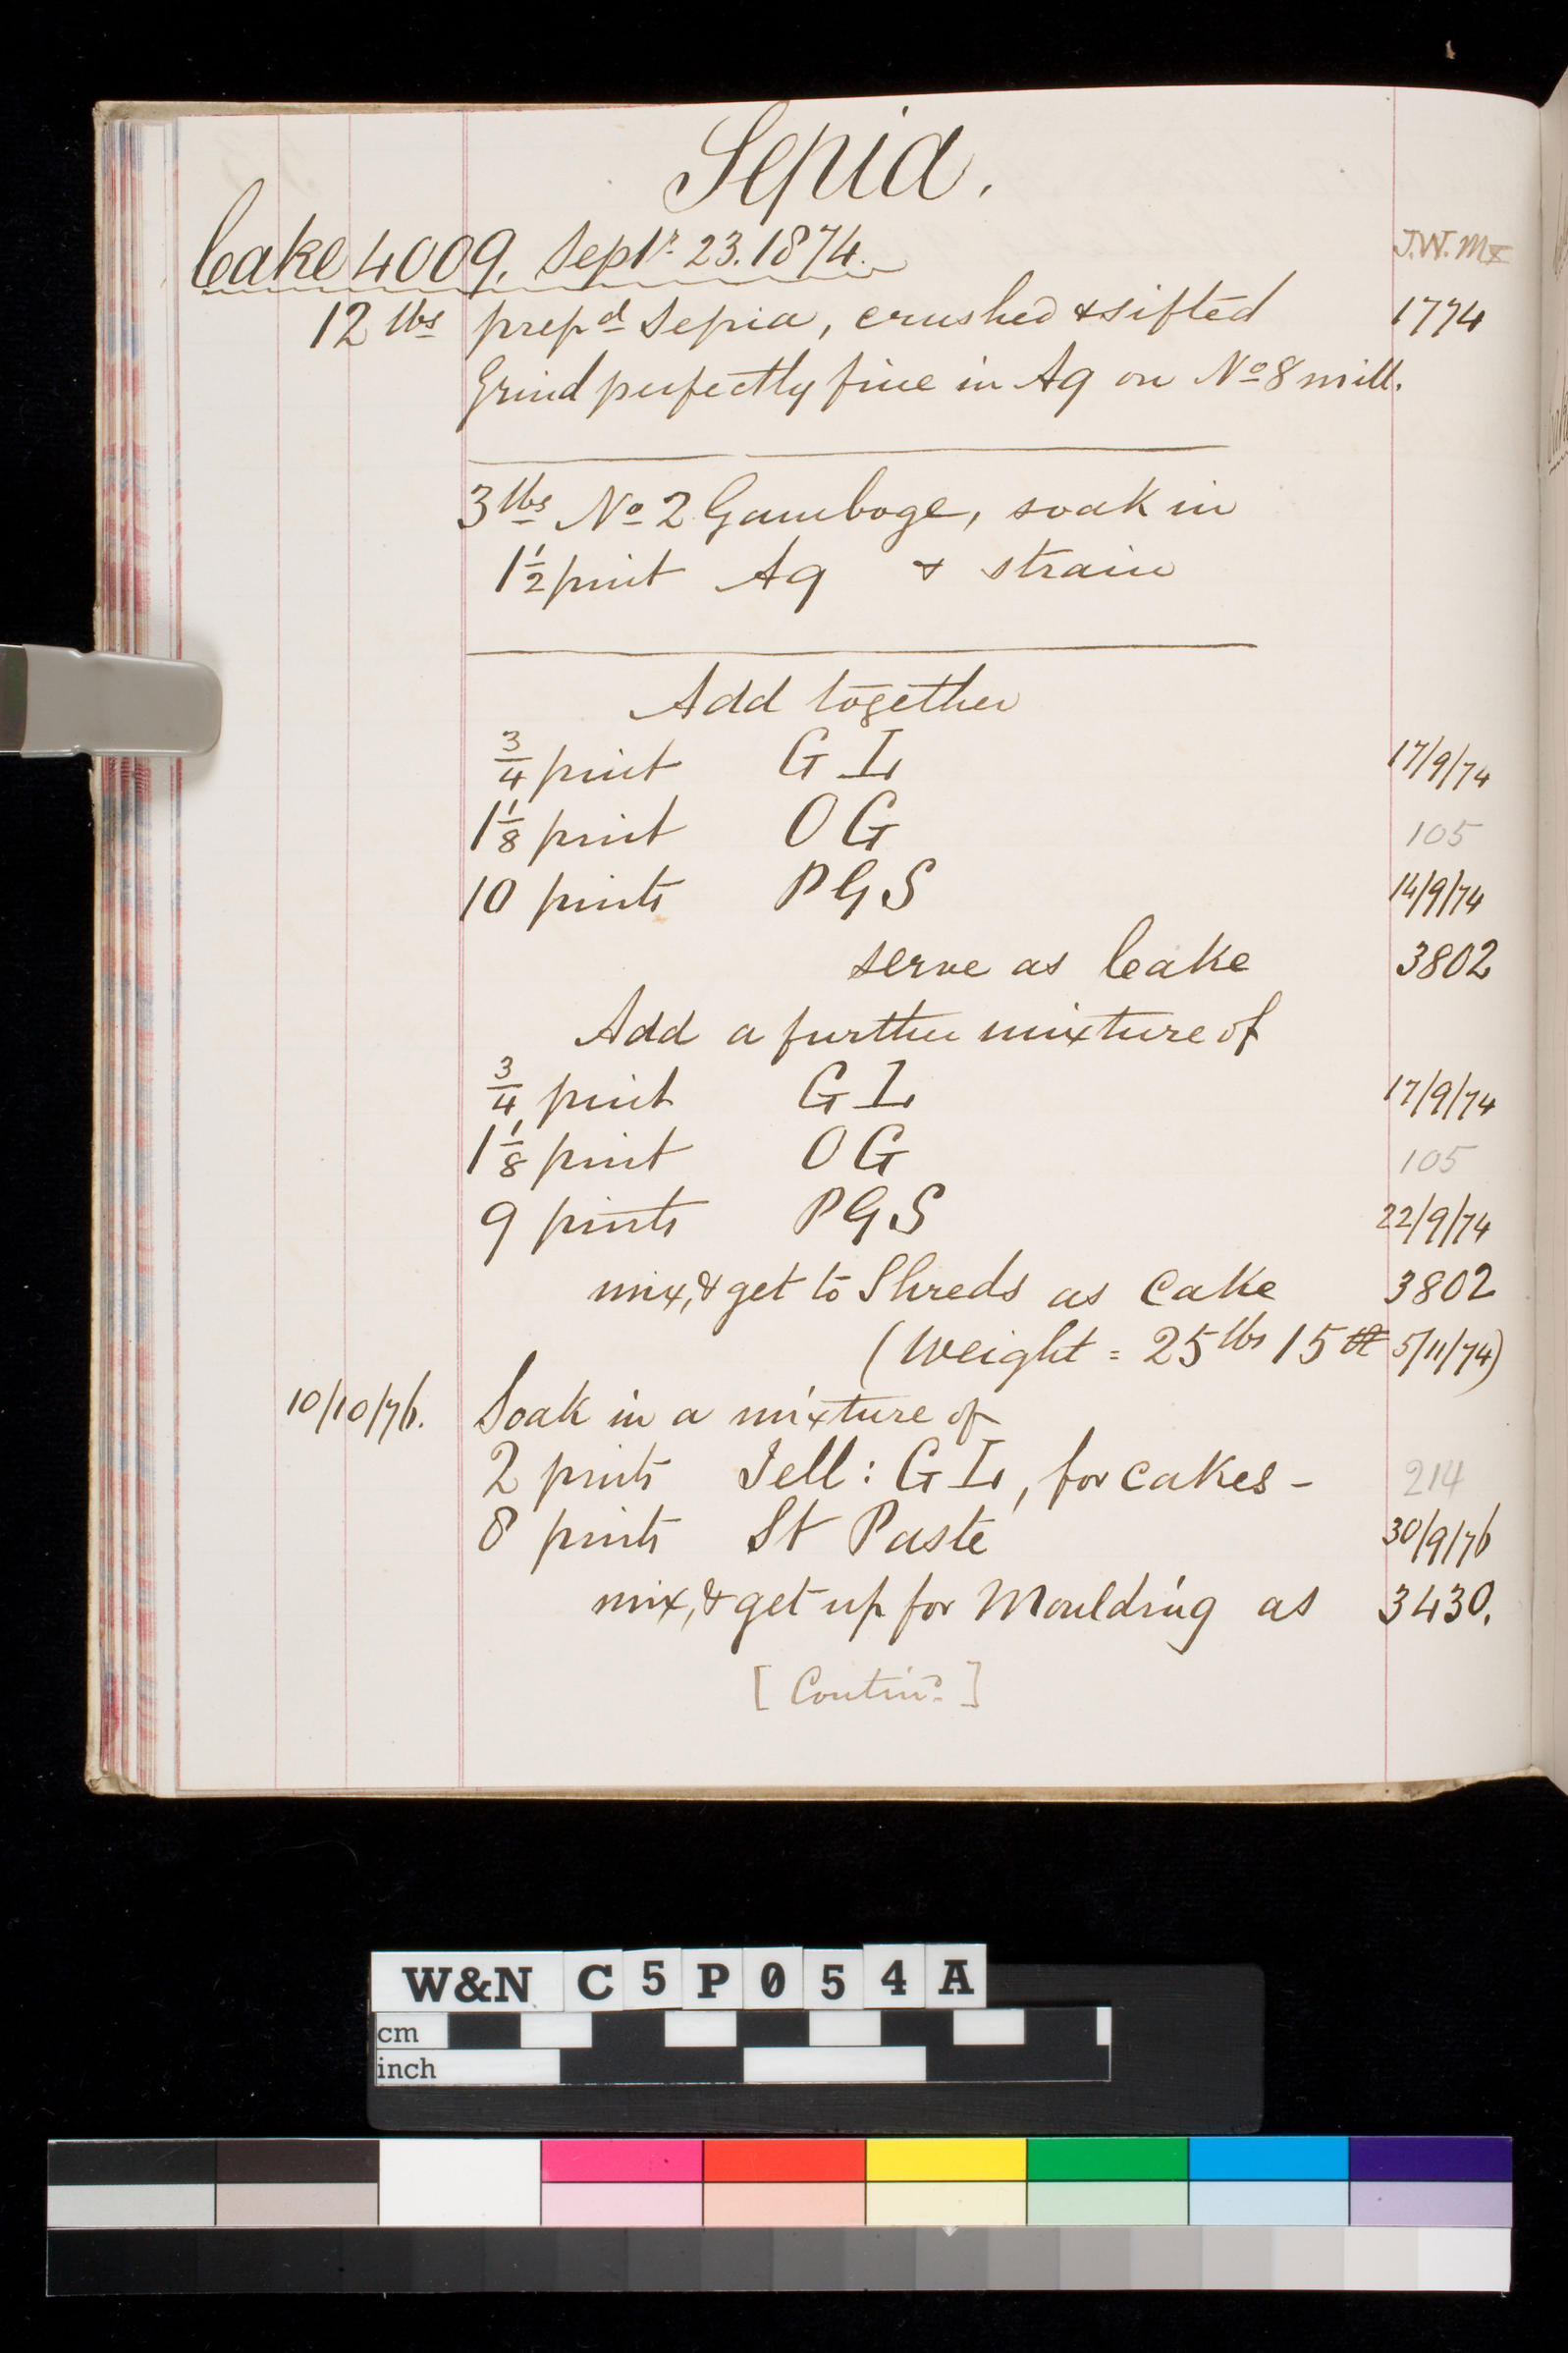 Sepia.
Cake 4009. Septr. 23. 1874. J.W.Mx
12 lbs prepd Sepia, crushed & sifted 1774
Grind perfectly fine in Aq on No 8 mill.
3 lbs No 2 Gamboge, soak in
1 1/2 pint Aq & strain
Add together
3/4 pint G L 17/9/74
1 1/8 pint O G 105
10 pints P G S 14/9/74
serve as Cake 3802
Add a further mixture of
3/4 pint G L 17/9/74
1 1/8 pint O G 105
9 pints P G S 22/9/74
mix, & get to Shreds as Cake 3802
(Weight = 25 lbs 15 5/11/74)
10/10/76. Soak in a mixture of
2 pints Jell: G L, for cakes - 214
8 pints St Paste 30/9/76
mix, & get up for Moulding as 3430.
[Contind]
W&N C5P054A
cm
inch